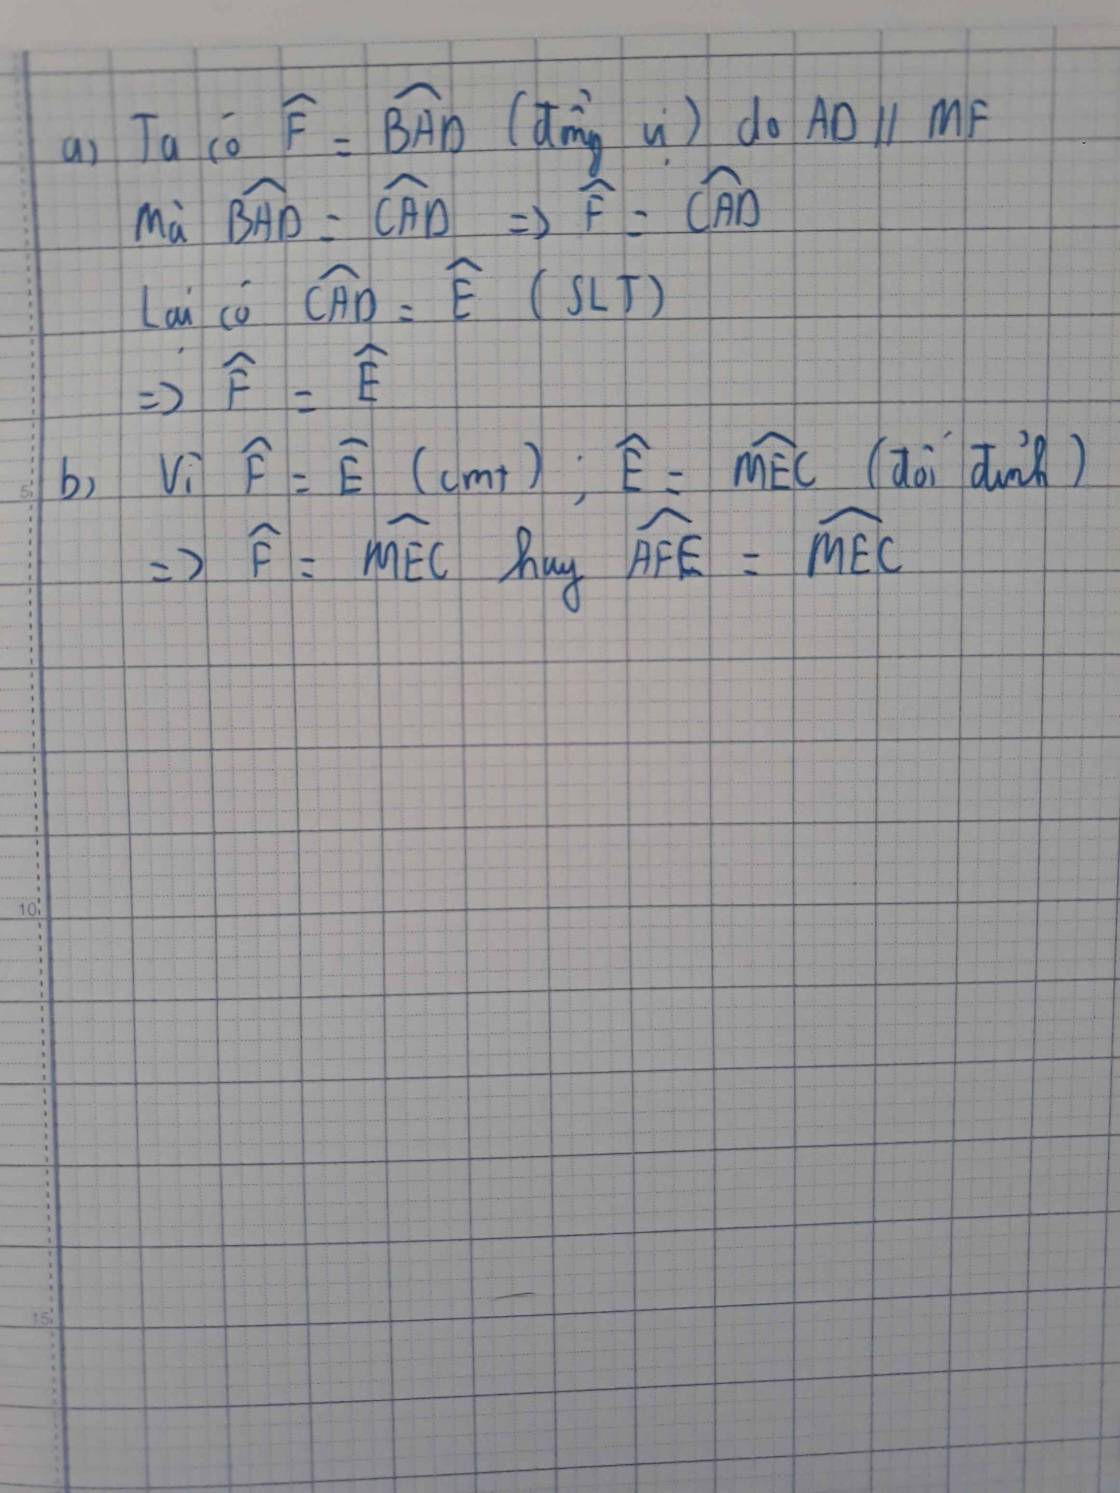 a) Ta có F̂ = B̂AD (đồng vị) do AD // MF
Mà B̂AD = ĈAD => F̂ = ĈAD
Lại có ĈAD = Ê (SLT)
=> F̂ = Ê
5 b) Vì F̂ = Ê (cmt) ; Ê = M̂EC (đối đỉnh)
=> F̂ = M̂EC hay ÂFE = M̂EC
10
15